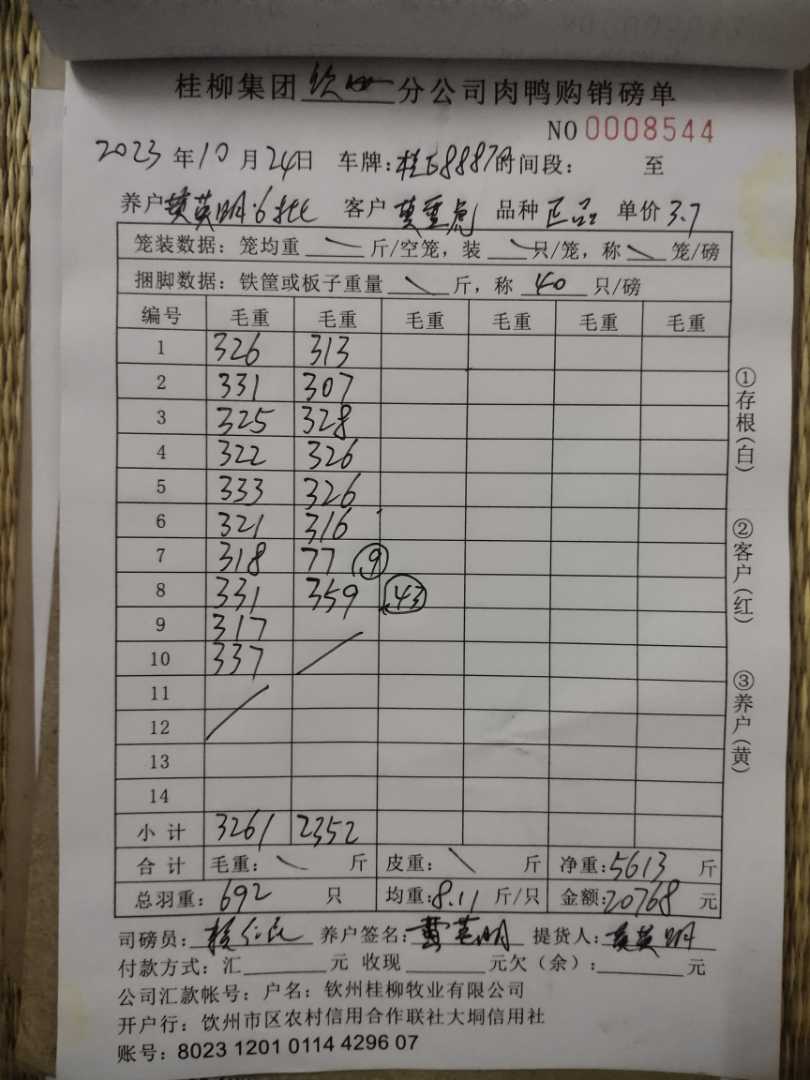 桂柳集团钦州分公司肉鸭购销磅单
NO 0008544
2023年10月24日 车牌:桂 8887 时间段: 至
养户黄英明·6批 客户 品种正品 单价3.7
笼装数据:笼均重 \ 斤/空笼,装 \ 只/笼,称 \ 笼/磅
捆脚数据:铁筐或板子重量 \ 斤,称 40 只/磅
编号 毛重 毛重 毛重 毛重 毛重 毛重
1 326 313
2 331 307
3 325 328
4 322 326
5 333 326
6 321 316
7 318 77 9
8 331 359 43
9 317
10 337
11
12
13
14
小计 3261 2352
合计 毛重: \ 斤 皮重: \ 斤 净重:5613 斤
总羽重: 692 只 均重:8.11斤/只 金额:20768元
司磅员: 养户签名:黄英明 提货人:黄英明
付款方式:汇 元 收现 元欠(余): 元
公司汇款帐号:户名:钦州桂柳牧业有限公司
开户行:饮州市区农村信用合作联社大垌信用社
账号:8023 1201 0114 4296 07
①存根(白)
②客户(红)
③养户(黄)